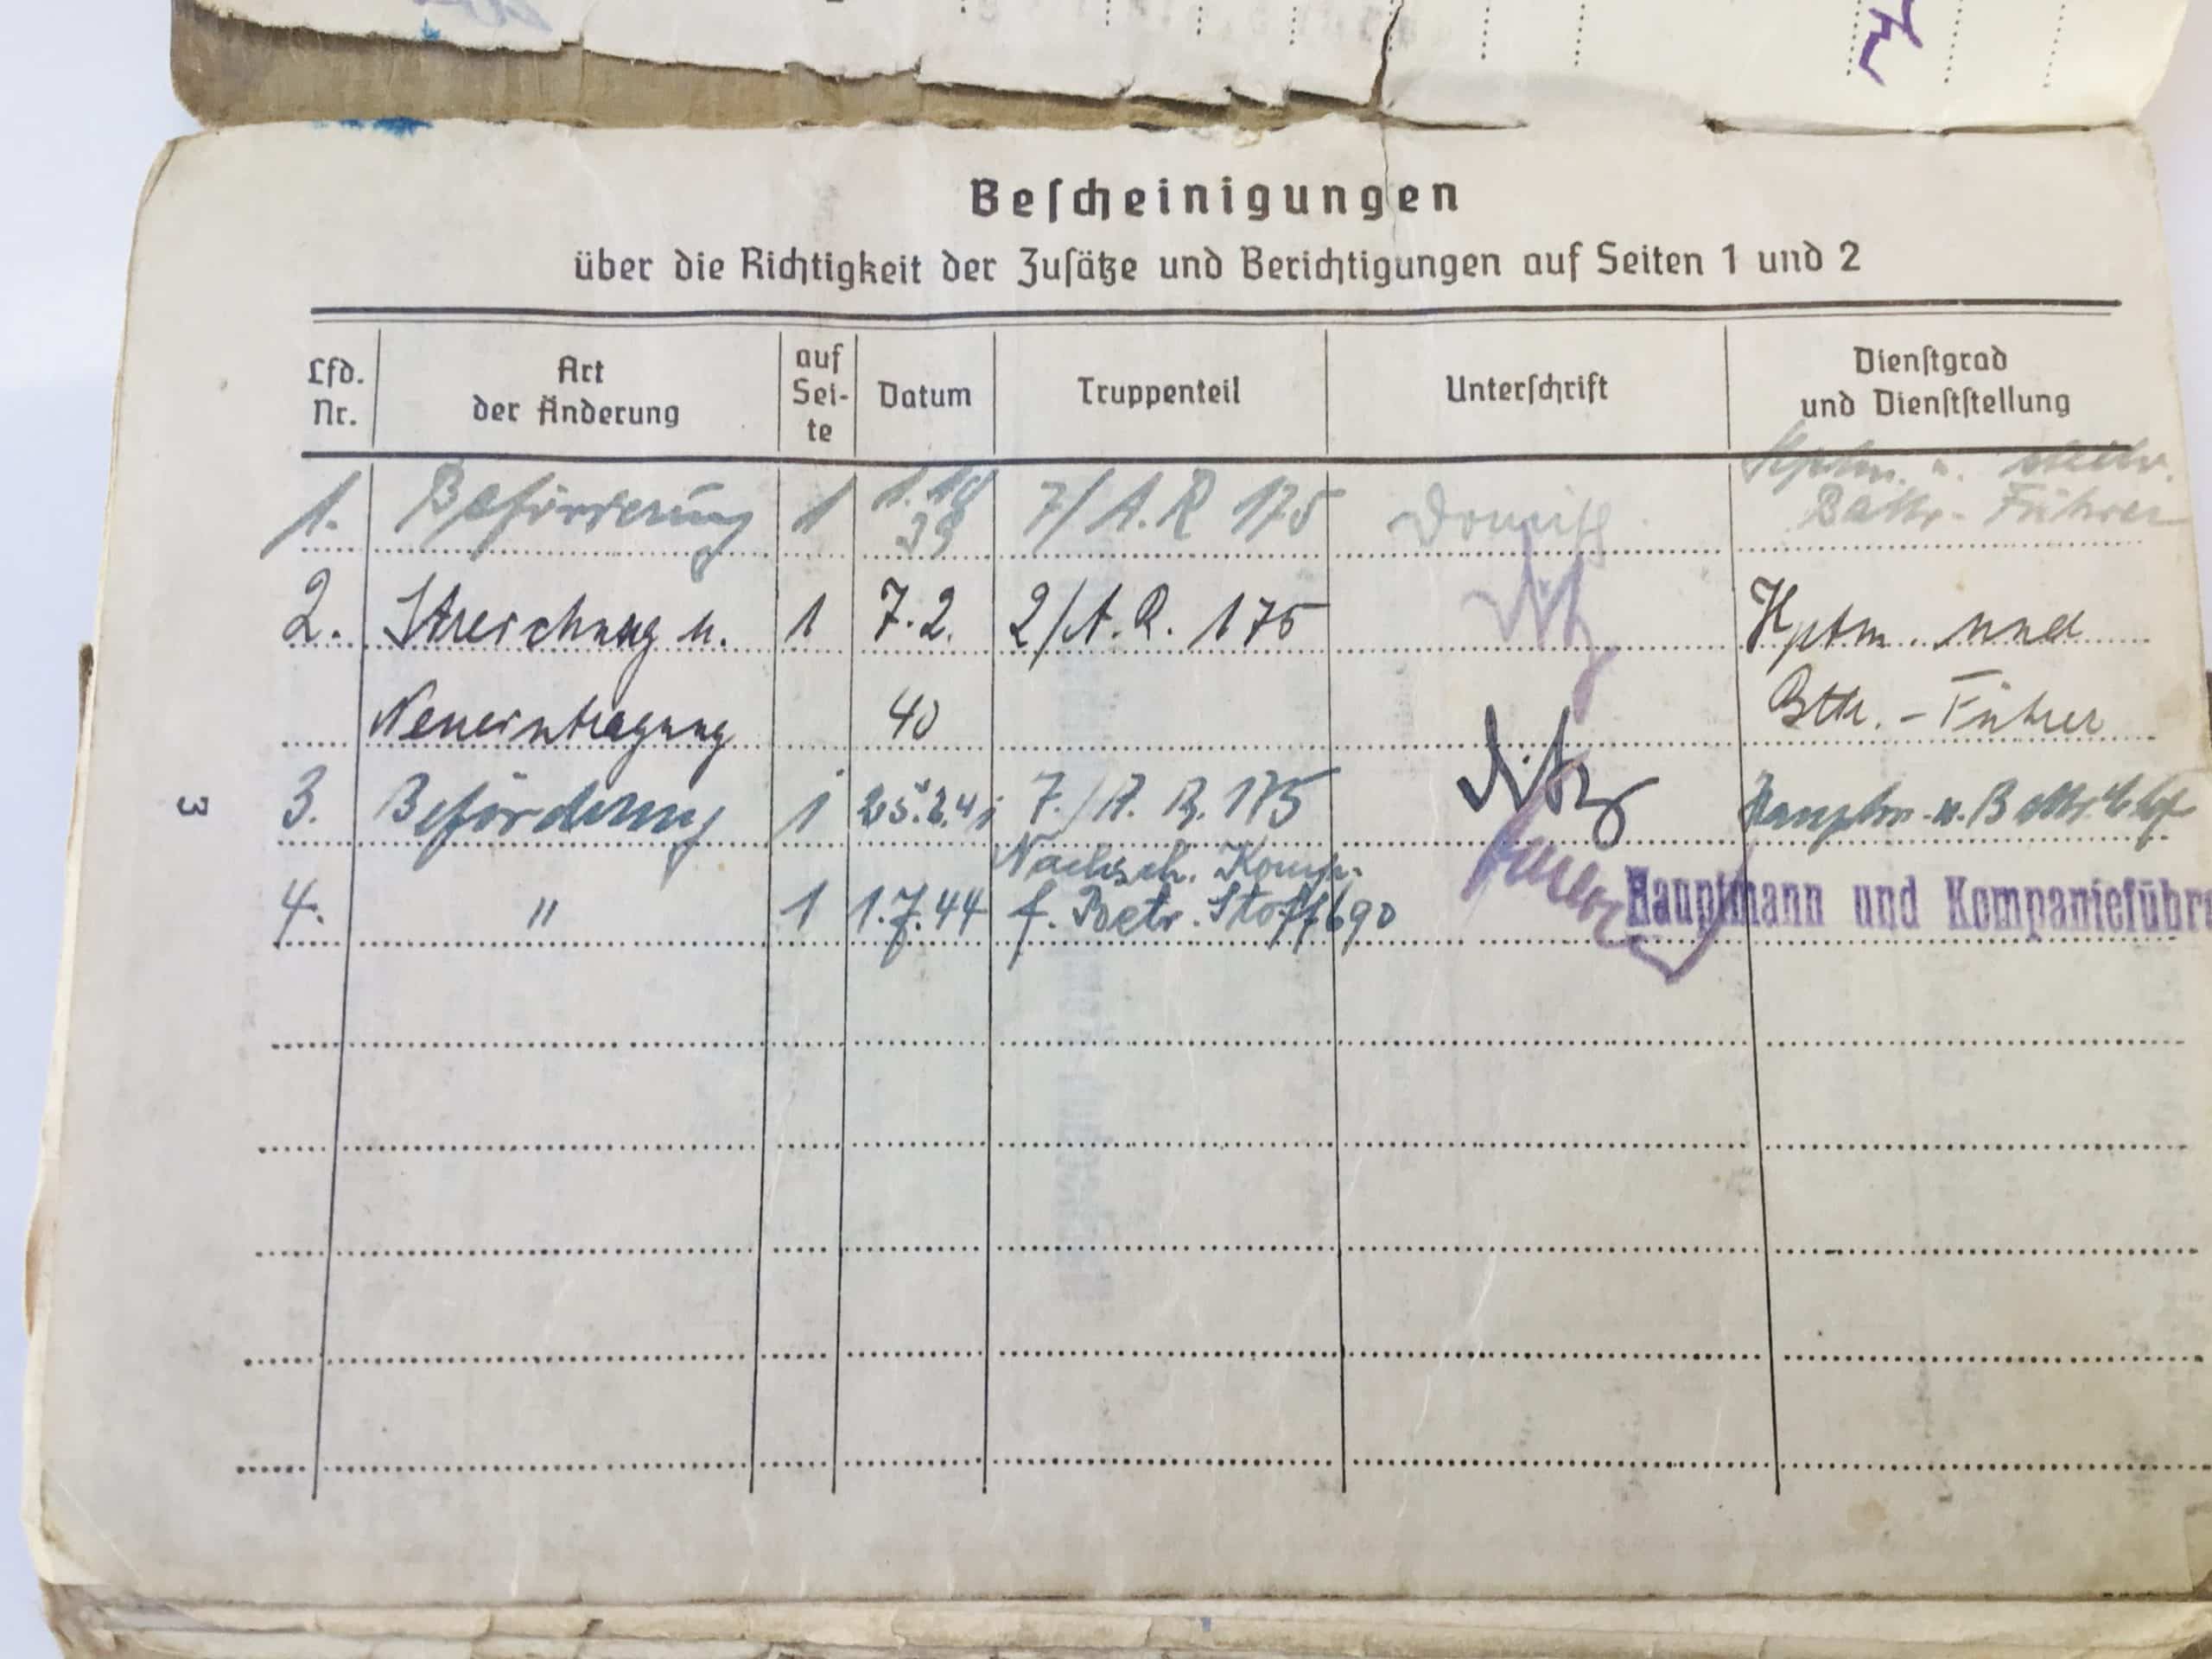 Bescheinigungen
über die Richtigkeit der Zusätze und Berichtigungen auf Seiten 1 und 2
Lfd. Nr. Art der Änderung auf Sei-te Datum Truppenteil Unterschrift Dienstgrad und Dienststellung
1. Beförderung 1 1.10 39 7/A.R 175 Hptm. u. stellv. Battr.-Führer
2. Streichung u. 1 7.2. 2/A.R. 175 Hptm. und
Neueintragung 40 Bttr.-Führer
3. Beförderung 1 7./A.R. 175 Nitz Hauptm. u. Battr. Chef
Nachsch. Komp.
4. " 1 1.7.44 f. Betr. Stoff 690 Hauptmann und Kompanieführe
3